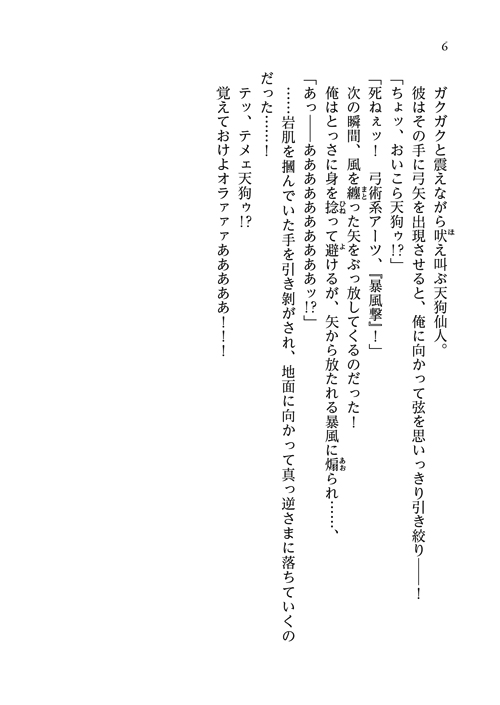 6
ガクガクと震えながら吠え叫ぶ天狗仙人。
彼はその手に弓矢を出現させると、俺に向かって弦を思いっきり引き絞り――！
「ちょッ、おいこら天狗ゥ!?」
「死ねぇッ！　弓術系アーツ、『暴風撃』！」
次の瞬間、風を纏った矢をぶっ放してくるのだった！
俺はとっさに身を捻って避けるが、矢から放たれる暴風に煽られ……、
「あっ――ああああああああああッ!?」
……岩肌を摑んでいた手を引き剝がされ、地面に向かって真っ逆さまに落ちていくの
だった……！
テッ、テメェ天狗ゥ!?
覚えておけよオラァァァああああああ！！！